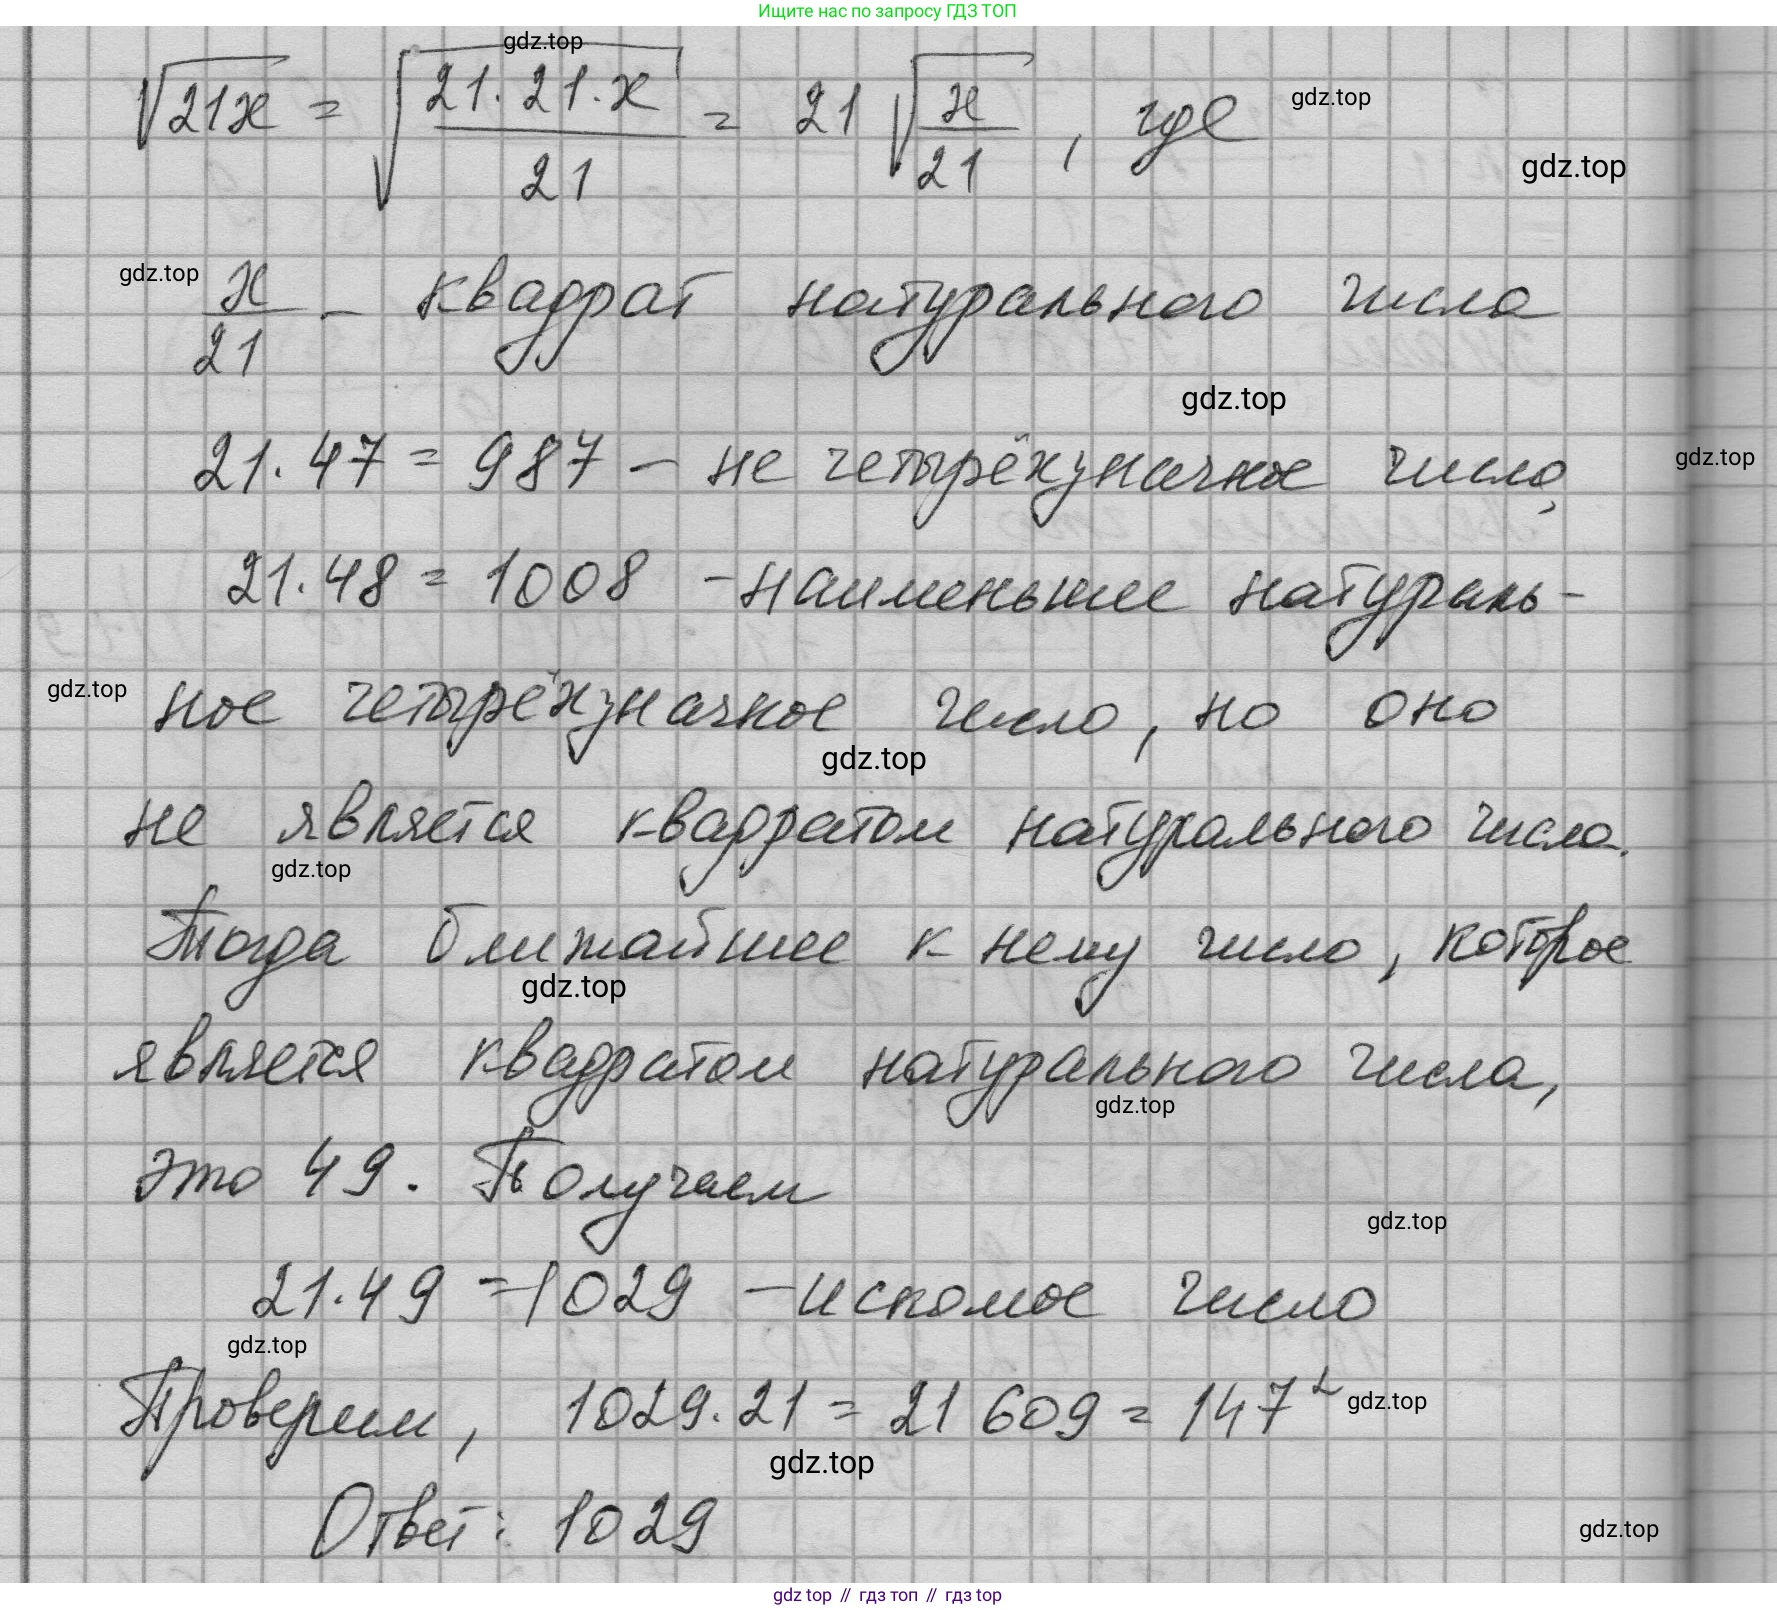 Ищите нас по запросу ГДЗ ТОП
gdz.top
√21x = √(21·21·x / 21) = 21 √(x/21), где
gdz.top
gdz.top
gdz.top
x/21 – квадрат натурального числа
gdz.top
21·47 = 987 – не четырёхзначное число,
gdz.top
21·48 = 1008 – наименьшее натураль-
gdz.top
ное четырёхзначное число, но оно
gdz.top
не является квадратом натурального числа.
gdz.top
Тогда ближайшее к нему число, которое
gdz.top
является квадратом натурального числа,
gdz.top
это 49. Получаем
gdz.top
21·49 = 1029 – искомое число
gdz.top
Проверим, 1029·21 = 21 609 = 147²
gdz.top
gdz.top
Ответ: 1029
gdz.top
gdz top // гдз топ // гдз top